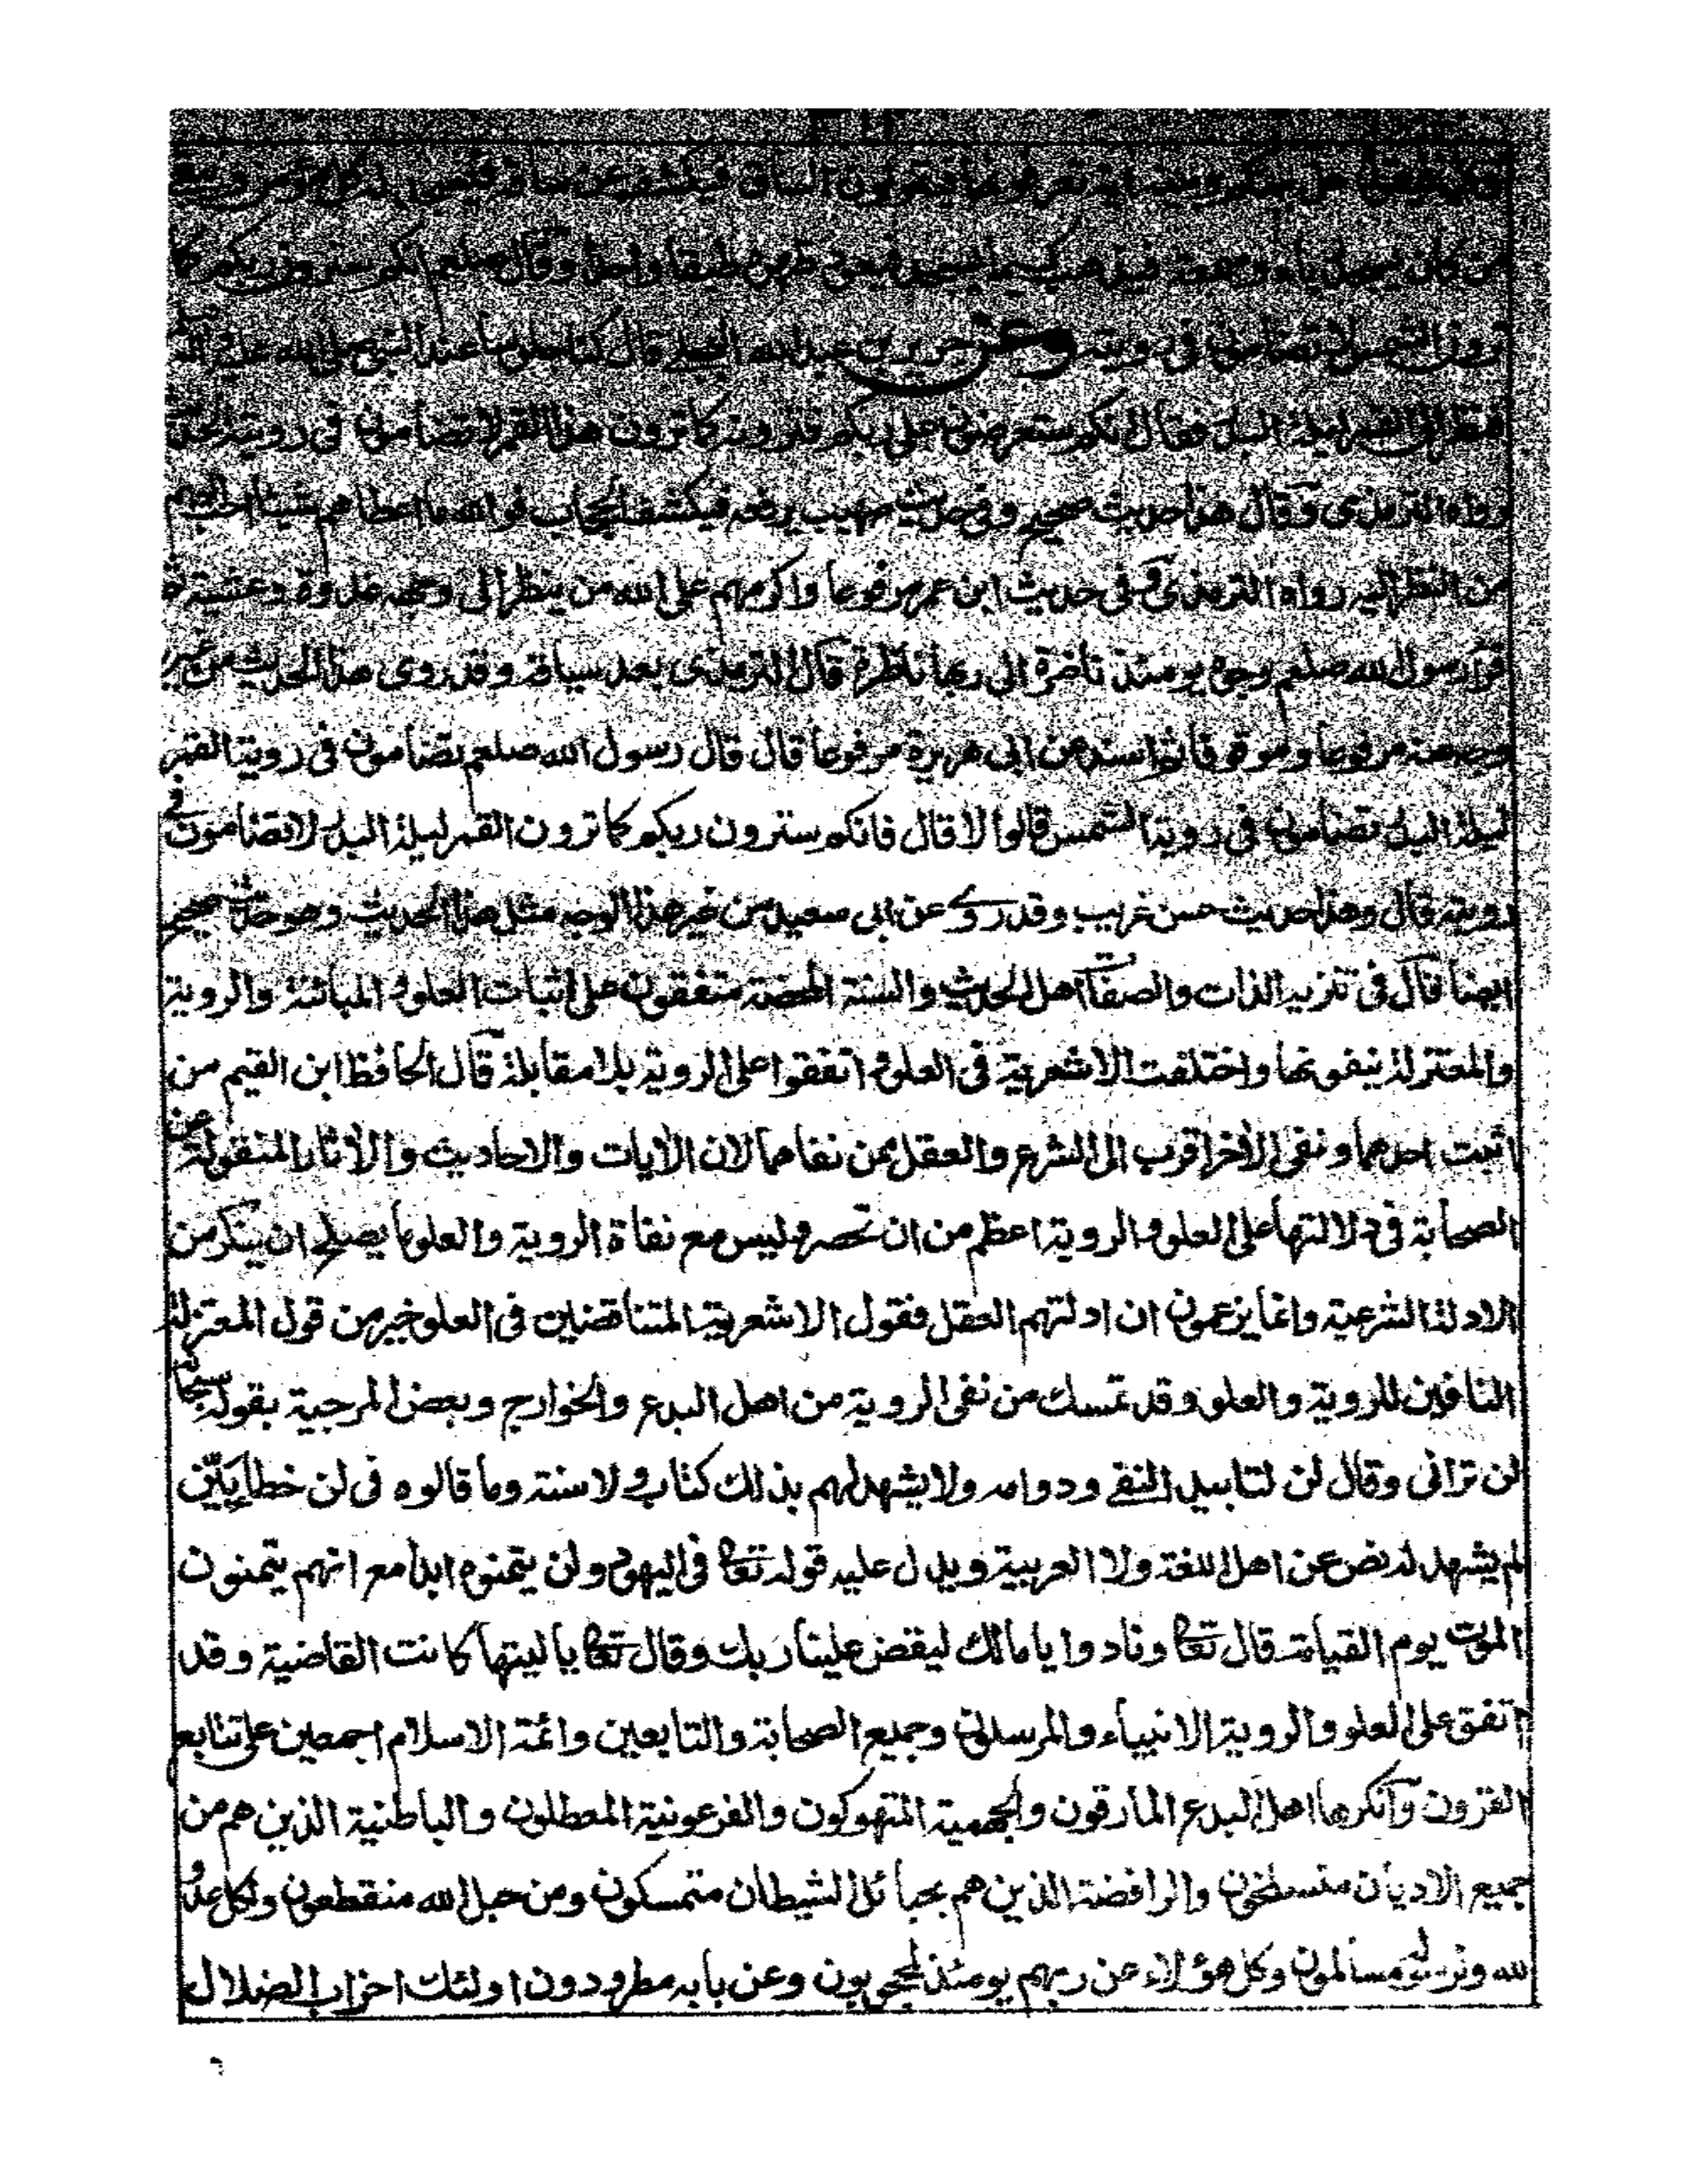 فيقول هل بينكم وبينه آية تعرفونها فيقولون الساق فيكشف عن ساقه فيسجد له كل مؤمن ويبقى
من كان يسجد رياء وسمعة فيذهب كيما يسجد فيعود ظهره طبقا واحدا وقال صلعم انكم سترون ربكم كما
ترون الشمس لا تضامون فى رويته وعن جرير بن عبد الله البجلي قال كنا جلوسا عند النبى صلى الله عليه واله وسلم
فنظر الى القمر ليلة البدر فقال انكم ستعرضون على ربكم فترونه كما ترون هذا القمر لا تضامون فى رويته الحديث
رواه الترمذى وقال هذا حديث صحيح وفى حديث صهيب يرفعه فيكشف الحجاب فوالله ما اعطاهم شيئا احب اليهم
من النظر اليه رواه الترمذى وفى حديث ابن عمر مرفوعا واكرمهم على الله من ينظر الى وجهه غدوة وعشية ثم
قرأ رسول الله صلعم وجوه يومئذ ناضرة الى ربها ناظرة قال الترمذى بعد سياقه وقد روى هذا الحديث من غير
وجه عنه مرفوعا وموقوفا ثم اسند عن ابى هريرة مرفوعا قال قال رسول الله صلعم تضامون فى روية القمر
ليلة البدر تضامون فى روية الشمس قالوا لا قال فانكم سترون ربكم كما ترون القمر ليلة البدر لا تضامون فى
رويته قال وهذا حديث حسن غريب وقد روى عن ابى سعيد من غير هذا الوجه مثل هذا الحديث وهو حديث صحيح
ايضا قال فى تنزيه الذات والصفات اهل الحديث والسنة المحضة متفقون على اثبات العلو والمباينة والروية
والمعتزلة ينفونها واختلفت الاشعرية فى العلو واتفقوا على الروية بلا مقابلة قال الحافظ ابن القيم من
اثبت احدهما ونفى الاخر اقرب الى الشرع والعقل ممن نفاهما لان الايات والاحاديث والاثار المنقولة عن
الصحابة فى دلالتها على العلو والروية اعظم من ان تحصر وليس مع نفاة الروية والعلو ما يصلح ان يذكر من
الادلة الشرعية وانما يزعمون ان ادلتهم العقل فقول الاشعرية المتناقضين فى العلو خير من قول المعتزلة
النافين للروية والعلو وقد تمسك من نفى الروية من اهل البدع والخوارج وبعض المرجية بقوله سبحانه
لن ترانى وقال لن لتابيد النفى ودوامه ولا يشهد لهم بذلك كتاب ولا سنة وما قالوه فى لن خطا بيّن
لم يشهد له نص عن اهل اللغة ولا العربية ويدل عليه قوله تعا فى اليهود ولن يتمنوه ابدا مع انهم يتمنون
الموت يوم القيامة قال تعا ونادوا يا مالك ليقض علينا ربك وقال تعا يا ليتها كانت القاضية وقد
اتفق على العلو والروية الانبياء والمرسلون وجميع الصحابة والتابعين وائمة الاسلام اجمعين على تتابع
القرون وانكرها اهل البدع المارقون والجهمية المتهوكون والفرعونية المعطلون والباطنية الذين هم من
جميع الاديان منسلخون والرافضة الذين هم بحبائل الشيطان متمسكون ومن حبل الله منقطعون ولكل عدو
لله ورسوله مسالمون وكل هؤلاء عن ربهم يومئذ لمحجوبون وعن بابه مطرودون اولئك احزاب الضلال